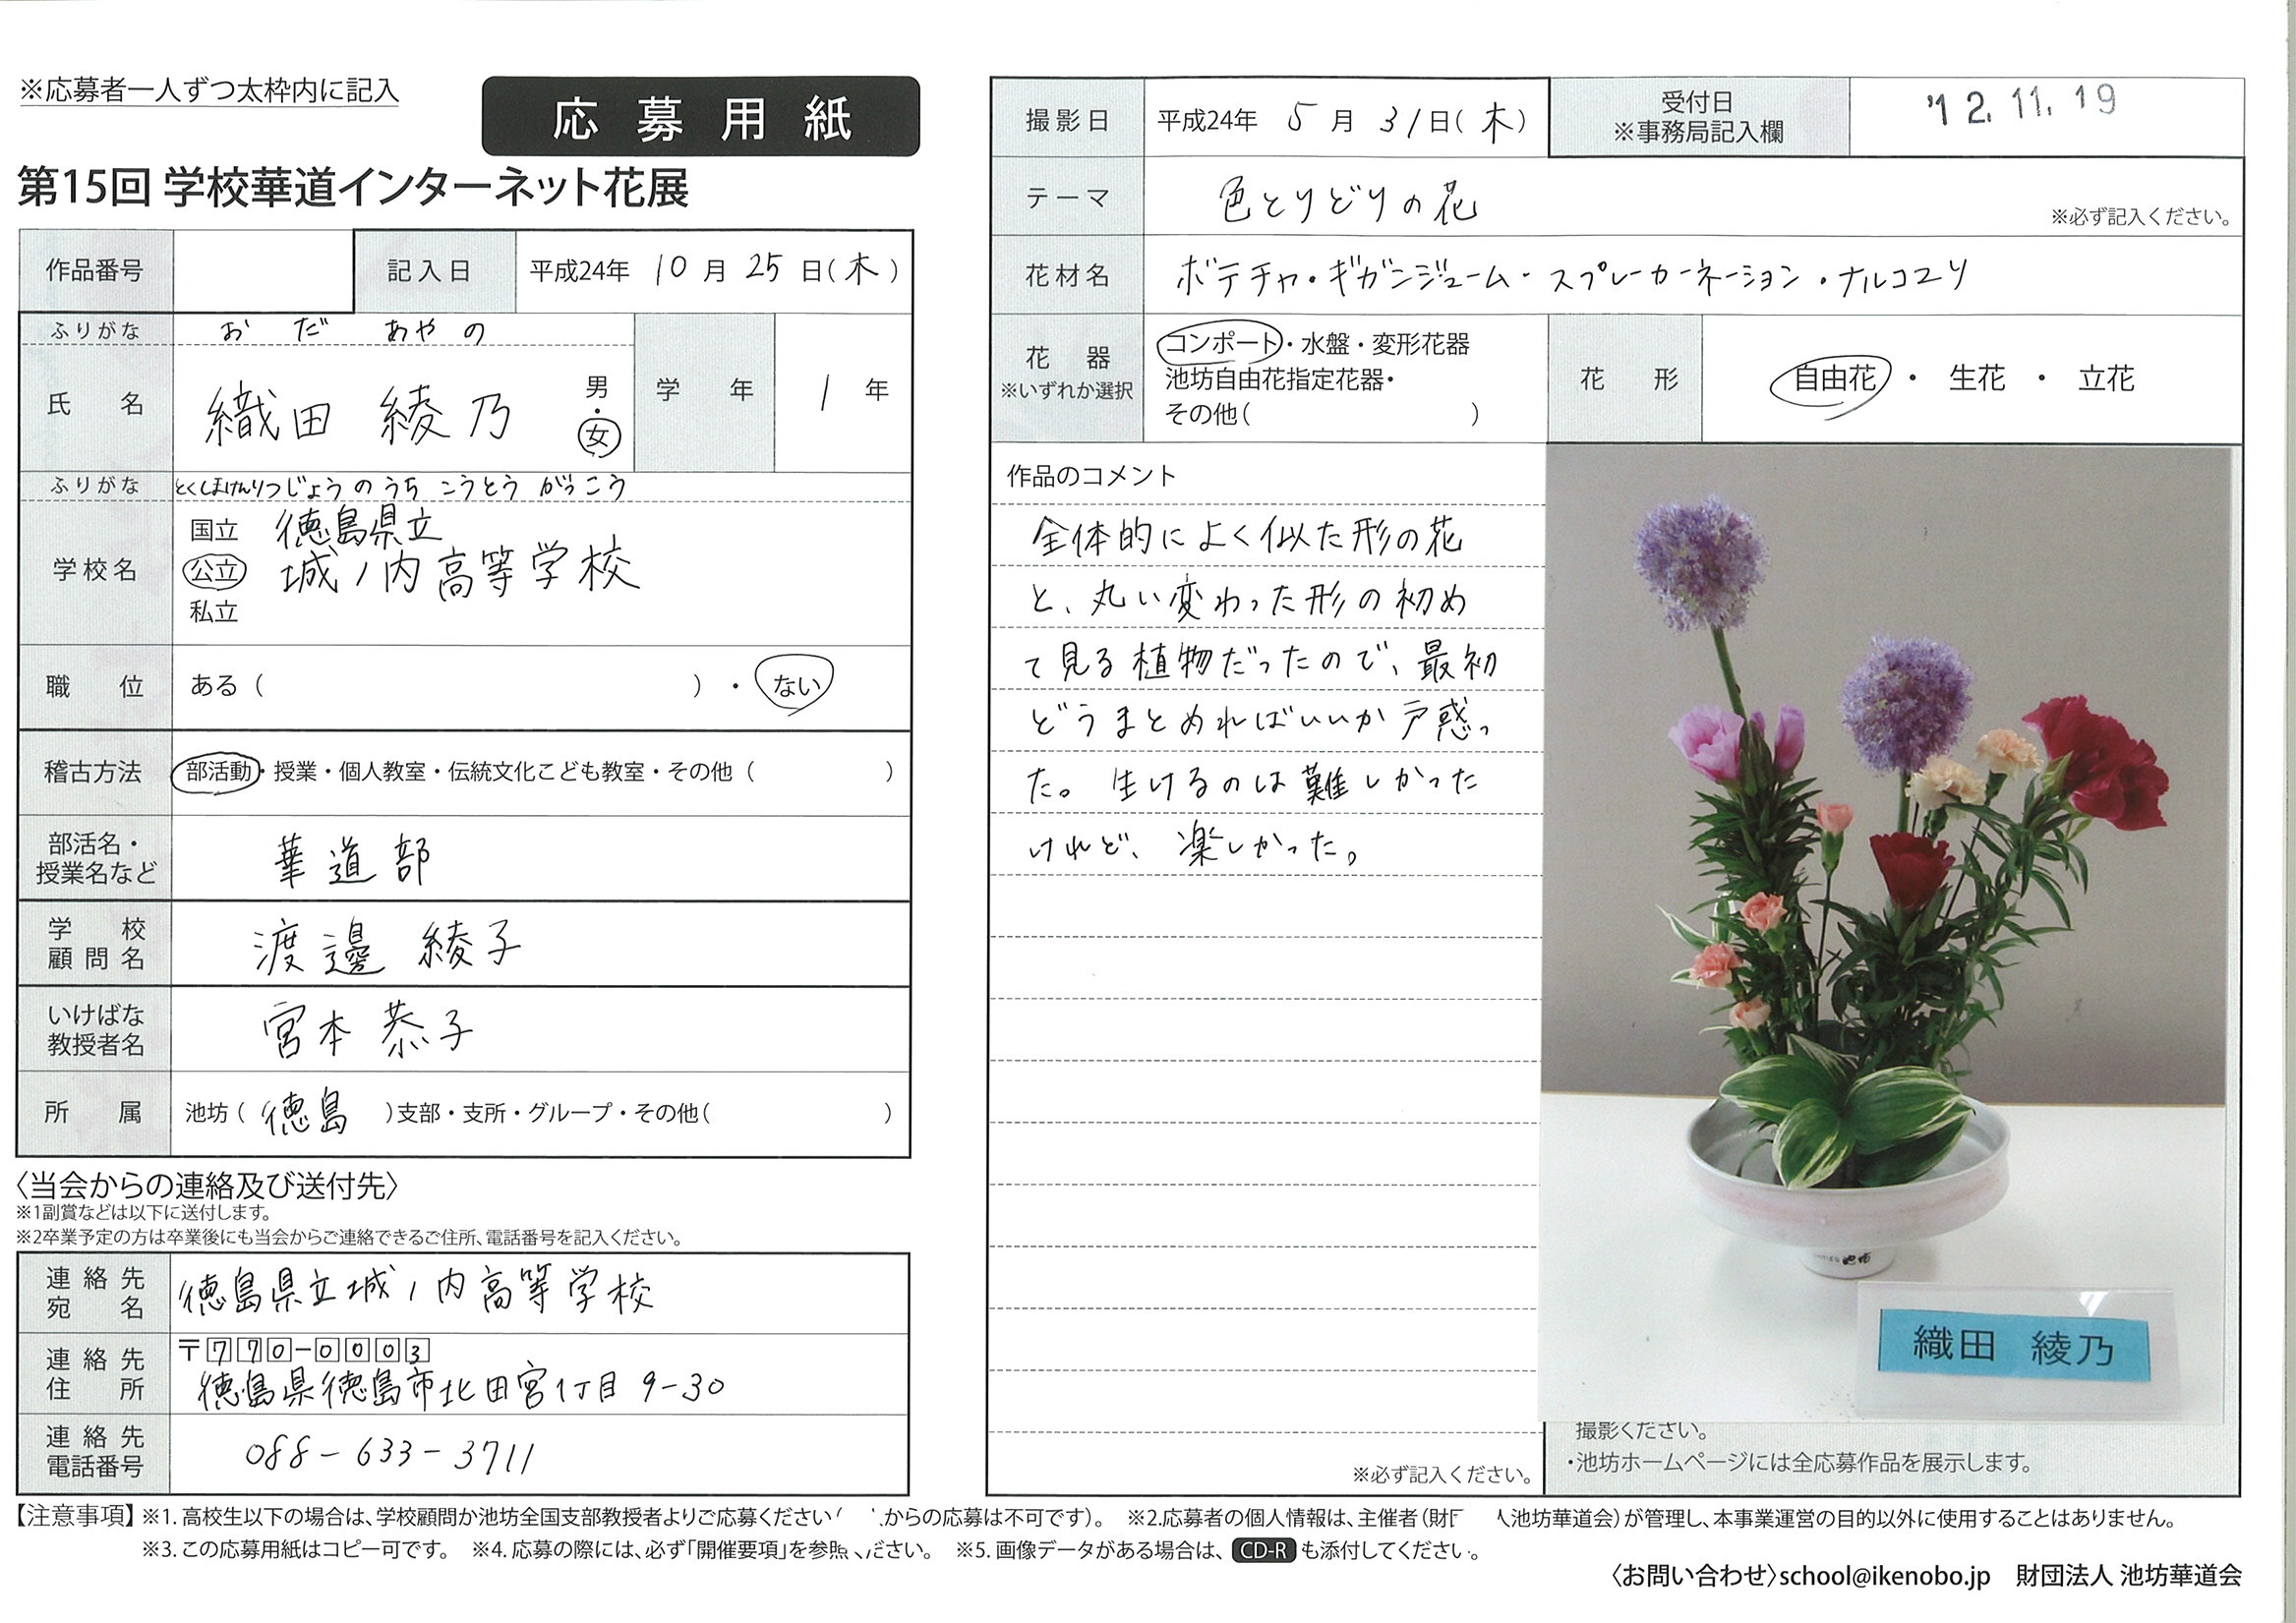 ※応募者一人ずつ太枠内に記入
応募用紙
第15回 学校華道インターネット花展
作品番号
記入日 平成24年 10月 25日(木)
ふりがな おだ あやの
氏名 織田 綾乃 男・女
学年 1年
ふりがな とくしまけんりつじょうのうちこうとうがっこう
学校名 国立 公立 私立
徳島県立
城ノ内高等学校
職位 ある( )・ない
稽古方法 部活動・授業・個人教室・伝統文化こども教室・その他( )
部活名・授業名など 華道部
学校顧問名 渡邊 綾子
いけばな教授者名 宮本 恭子
所属 池坊(徳島)支部・支所・グループ・その他( )
〈当会からの連絡及び送付先〉
※1副賞などは以下に送付します。
※2卒業予定の方は卒業後にも当会からご連絡できるご住所、電話番号を記入ください。
連絡先宛名 徳島県立城ノ内高等学校
連絡先住所 〒770-0003
徳島県徳島市北田宮1丁目9-30
連絡先電話番号 088-633-3711
撮影日 平成24年 5月 31日(木)
受付日
※事務局記入欄
'12.11.19
テーマ 色とりどりの花
※必ず記入ください。
花材名 ボテチャ・ギガンジューム・スプレーカーネーション・ナルコユリ
花器
※いずれか選択
コンポート・水盤・変形花器
池坊自由花指定花器・
その他( )
花形 自由花・生花・立花
作品のコメント
全体的によく似た形の花
と、丸い変わった形の初め
て見る植物だったので、最初
どうまとめればいいか戸惑っ
た。生けるのは難しかった
けれど、楽しかった。
※必ず記入ください。
池坊
織田 綾乃
撮影ください。
・池坊ホームページには全応募作品を展示します。
【注意事項】※1.高校生以下の場合は、学校顧問か池坊全国支部教授者よりご応募ください( からの応募は不可です)。 ※2.応募者の個人情報は、主催者(財 人池坊華道会)が管理し、本事業運営の目的以外に使用することはありません。
※3.この応募用紙はコピー可です。 ※4.応募の際には、必ず「開催要項」を参照ください。 ※5.画像データがある場合は、CD-Rも添付してください。
〈お問い合わせ〉school@ikenobo.jp 財団法人 池坊華道会